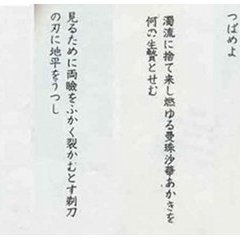 つばめよ
濁流に捨て来し燃ゆる曼珠沙華あかきを
何の生贄とせむ
見るために両瞼をふかく裂かむとす剃刀
の刃に地平をうつし